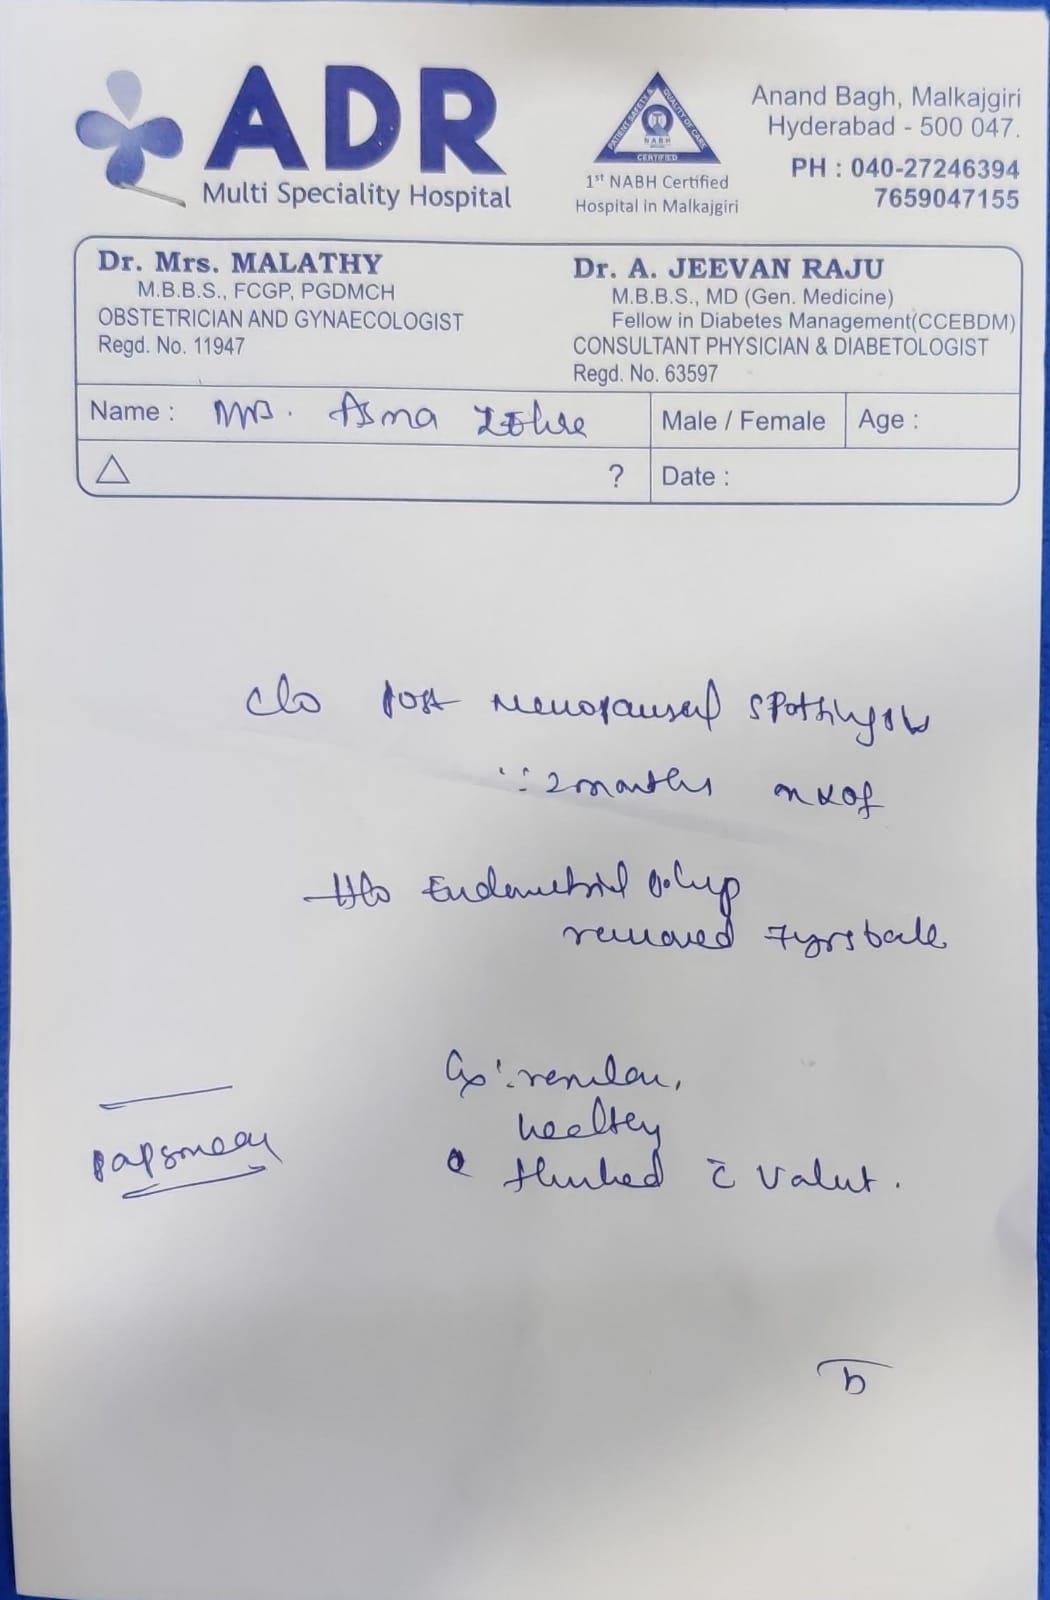 ADR
Multi Speciality Hospital
PATIENT SAFETY & QUALITY OF CARE
NABH
CERTIFIED
1st NABH Certified
Hospital in Malkajgiri
Anand Bagh, Malkajgiri
Hyderabad - 500 047.
PH : 040-27246394
7659047155
Dr. Mrs. MALATHY
M.B.B.S., FCGP, PGDMCH
OBSTETRICIAN AND GYNAECOLOGIST
Regd. No. 11947
Dr. A. JEEVAN RAJU
M.B.B.S., MD (Gen. Medicine)
Fellow in Diabetes Management(CCEBDM)
CONSULTANT PHYSICIAN & DIABETOLOGIST
Regd. No. 63597
Name : Mrs. Asma
Male / Female
Age :
△ ?
Date :
c/o post menopausal spotting
2 months
H/o Endometrial polyp
removed 7yrs back
Cx:
healthy
flushed c̄ vault.
papsmear